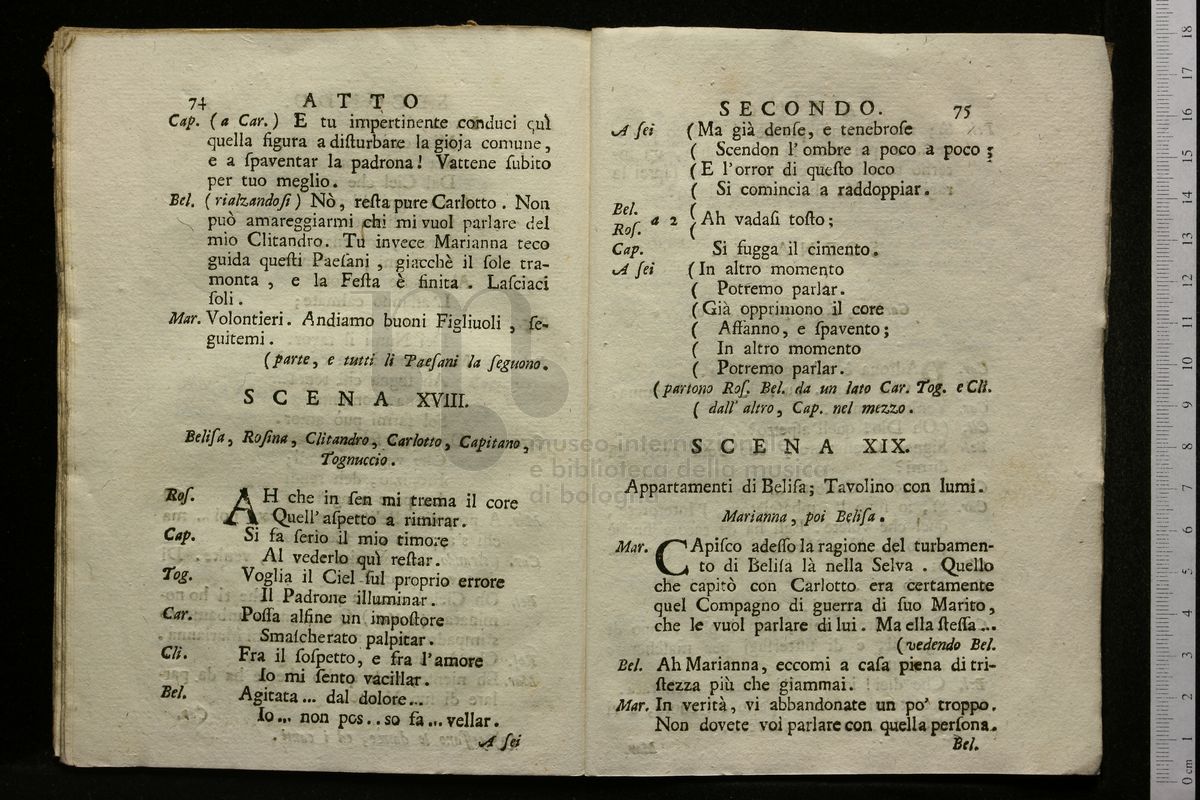 74 ATTO
Cap. (a Car.) E tu impertinente conduci quì
quella figura a diſturbare la gioja comune,
e a ſpaventar la padrona! Vattene ſubito
per tuo meglio.
Bel. (rialzandoſi) Nò, reſta pure Carlotto. Non
può amareggiarmi chi mi vuol parlare del
mio Clitandro. Tu invece Marianna teco
guida queſti Paeſani, giacchè il ſole tra-
monta, e la Feſta è finita. Laſciaci
ſoli.
Mar. Volontieri. Andiamo buoni Figliuoli, ſe-
guitemi.
(parte, e tutti li Paeſani la ſeguono.
SCENA XVIII.
Beliſa, Roſina, Clitandro, Carlotto, Capitano,
Tognuccio.
Roſ. AH che in ſen mi trema il core
Quell' aſpetto a rimirar.
Cap. Si fa ſerio il mio timore
Al vederlo quì reſtar.
Tog. Voglia il Ciel ſul proprio errore
Il Padrone illuminar.
Car. Poſſa alfine un impoſtore
Smaſcherato palpitar.
Cli. Fra il ſoſpetto, e fra l'amore
Io mi ſento vacillar.
Bel. Agitata... dal dolore...
Io... non pos..so fa...vellar.
A ſei
SECONDO. 75
A ſei (Ma già denſe, e tenebroſe
( Scendon l'ombre a poco a poco;
(E l'orror di queſto loco
( Si comincia a raddoppiar.
Bel.
Roſ. a 2 (Ah vadaſi toſto;
Cap. Si fugga il cimento.
A ſei (In altro momento
( Potremo parlar.
(Già opprimono il core
( Affanno, e ſpavento;
( In altro momento
( Potremo parlar.
(partono Roſ. Bel. da un lato Car. Tog. e Cli.
( dall' altro, Cap. nel mezzo.
SCENA XIX.
Appartamenti di Beliſa; Tavolino con lumi.
Marianna, poi Beliſa.
Mar. CApiſco adeſſo la ragione del turbamen-
to di Beliſa là nella Selva. Quello
che capitò con Carlotto era certamente
quel Compagno di guerra di ſuo Marito,
che le vuol parlare di lui. Ma ella ſteſſa...
(vedendo Bel.
Bel. Ah Marianna, eccomi a caſa piena di tri-
ſtezza più che giammai.
Mar. In verità, vi abbandonate un po' troppo.
Non dovete voi parlare con quella perſona.
Bel.
museo internazionale
e biblioteca della musica
di bologna
0 cm 1 2 3 4 5 6 7 8 9 10 11 12 13 14 15 16 17 18